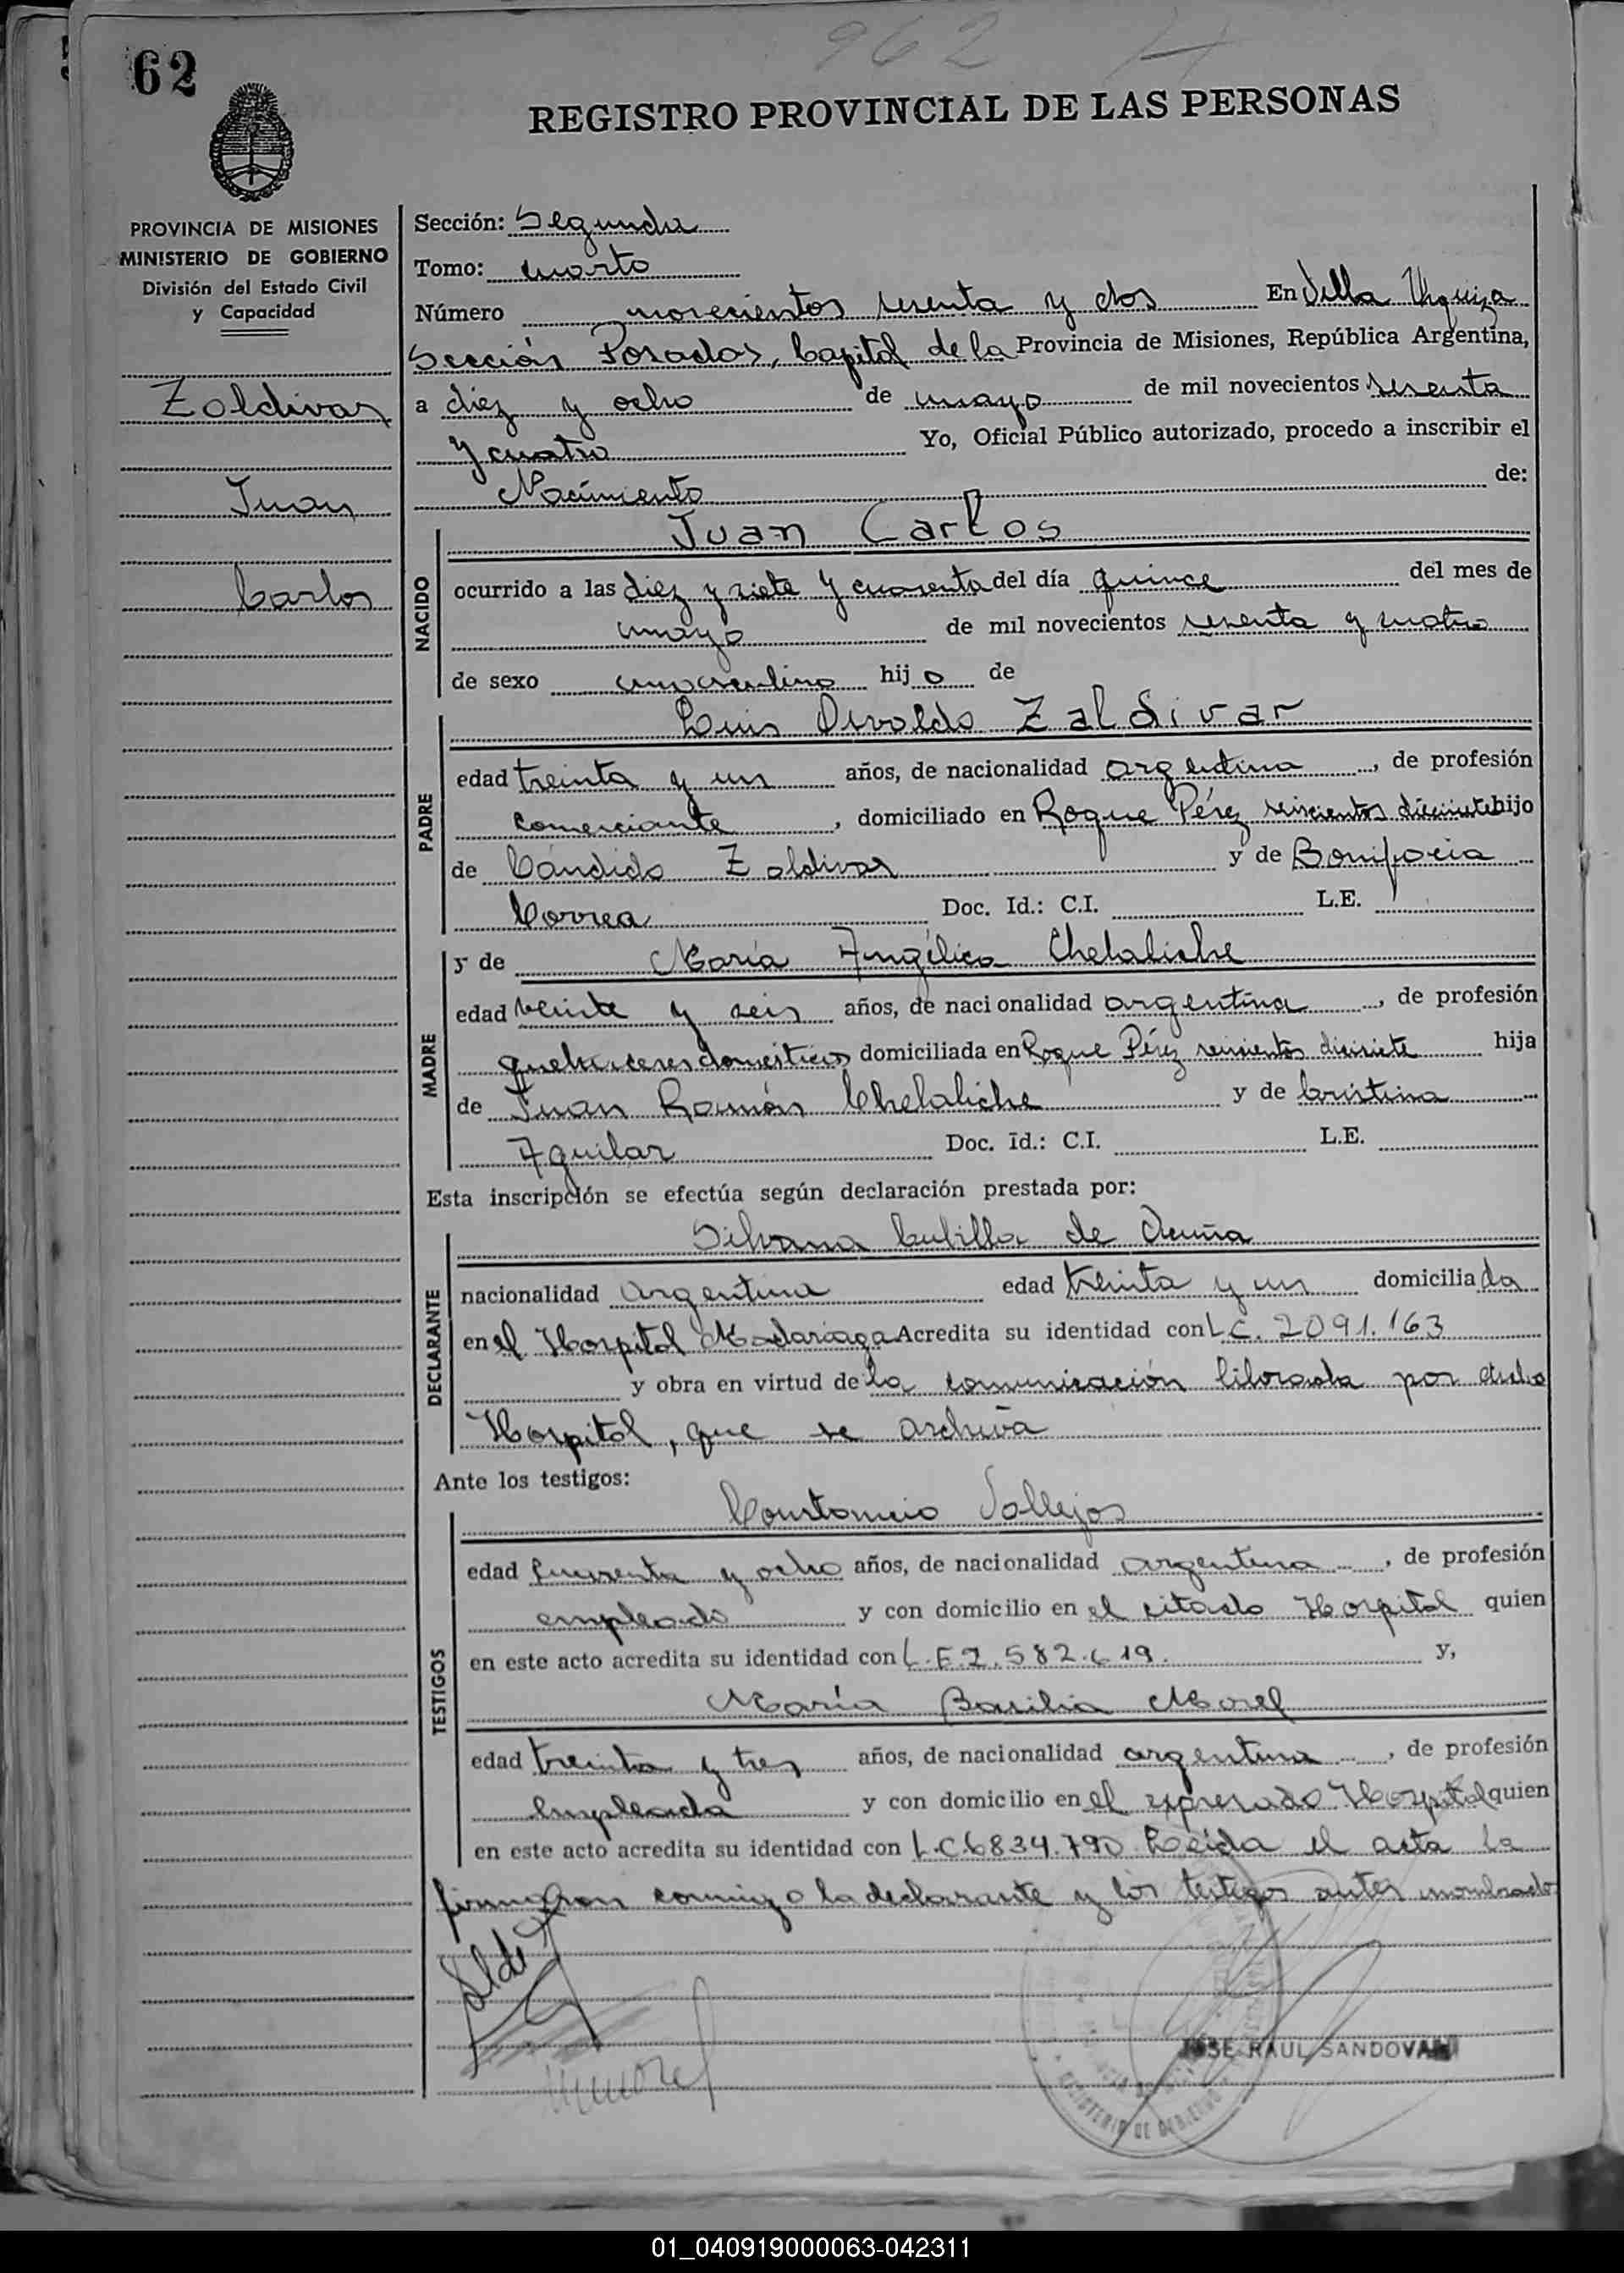 962
62
REGISTRO PROVINCIAL DE LAS PERSONAS
PROVINCIA DE MISIONES
MINISTERIO DE GOBIERNO
División del Estado Civil
y Capacidad
Zaldivar
Juan
Carlos
Sección: Segunda
Tomo: cuarto
Número novecientos sesenta y dos En Villa Urquiza
Sección Posadas, Capital de la Provincia de Misiones, República Argentina,
a diez y ocho de mayo de mil novecientos sesenta
y cuatro Yo, Oficial Público autorizado, procedo a inscribir el
Nacimiento de:
NACIDO
Juan Carlos
ocurrido a las diez y siete y cuarenta del día quince del mes de
mayo de mil novecientos sesenta y cuatro
de sexo masculino hijo de
PADRE
Luis Osvaldo Zaldivar
edad treinta y un años, de nacionalidad argentina, de profesión
comerciante, domiciliado en Roque Pérez seiscientos diecisiete hijo
de Cándido Zaldivar y de Bonifacia
Correa Doc. Id.: C.I. L.E.
MADRE
y de María Angélica Chelaliche
edad veinte y seis años, de nacionalidad argentina, de profesión
quehaceres domésticos domiciliada en Roque Pérez seiscientos diecisiete hija
de Juan Ramón Chelaliche y de Cristina
Aguilar Doc. Id.: C.I. L.E.
Esta inscripción se efectúa según declaración prestada por:
DECLARANTE
Silvana Cubilla de Acuña
nacionalidad argentina edad treinta y un domiciliada
en el Hospital Madariaga Acredita su identidad con L.C. 2091.163
y obra en virtud de la comunicación librada por dicho
Hospital, que se archiva
Ante los testigos:
TESTIGOS
Constancio Vallejos
edad cuarenta y ocho años, de nacionalidad argentina, de profesión
empleado y con domicilio en el citado Hospital quien
en este acto acredita su identidad con L.E. 582.619. y,
María Basilia Morel
edad treinta y tres años, de nacionalidad argentina, de profesión
empleada y con domicilio en el expresado Hospital quien
en este acto acredita su identidad con L.C. 6834.790 Leída el acta la
firmaron conmigo la declarante y los testigos antes nombrados
JOSE RAUL SANDOVAL
MINISTERIO DE GOBIERNO
01_040919000063-042311